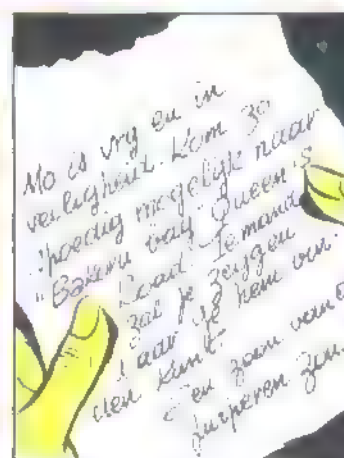 Mo is vry en in
veiligheid. Kom zo
spoedig mogelijk naar
"Bakaru bay" Queen's
Road. Iemand
zal je zeggen
waar je hem vin-
den kunt.
Een zoon van de
purperen zon.